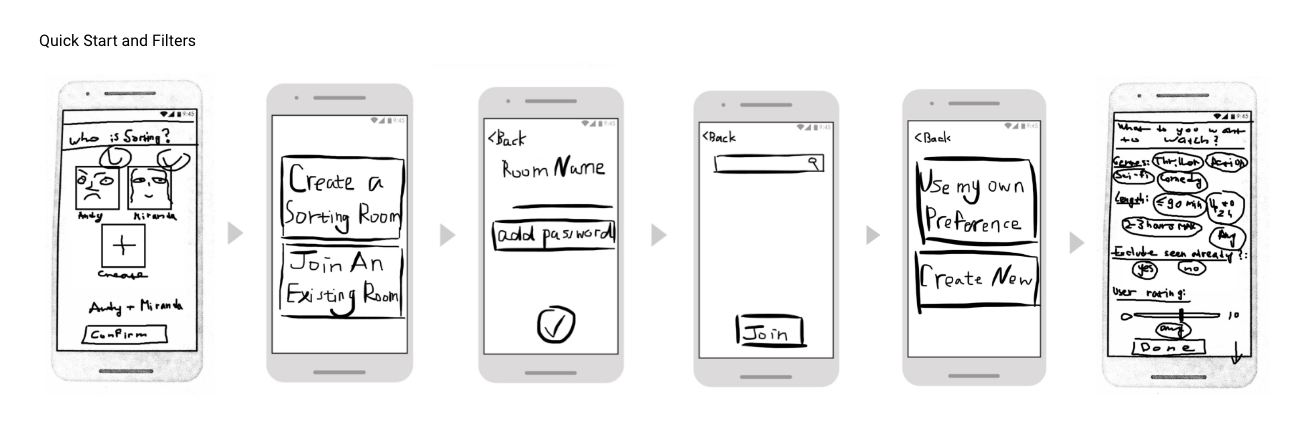 Quick Start and Filters
9:45
Who is Sorting?
Andy Miranda
Create
Andy + Miranda
Confirm
9:45
Create a
Sorting Room
Join An
Existing Room
9:45
<Back
Room Name
add password
9:45
<Back
Join
9:45
<Back
Use my own
Preference
Create New
9:45
What do you want
to watch?
Genres: Thriller Action
Sci-fi Comedy
Length: ≤90 min
2-3 hours max
Any
Exclude seen already?:
yes no
User rating:
0 10
any
Done